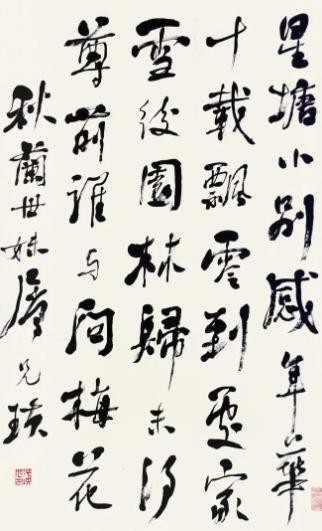 星塘小別感年華
十載飄零到處家
雪後園林歸未得
尊前誰与問梅花
秋蘭世妹屬 兄璜